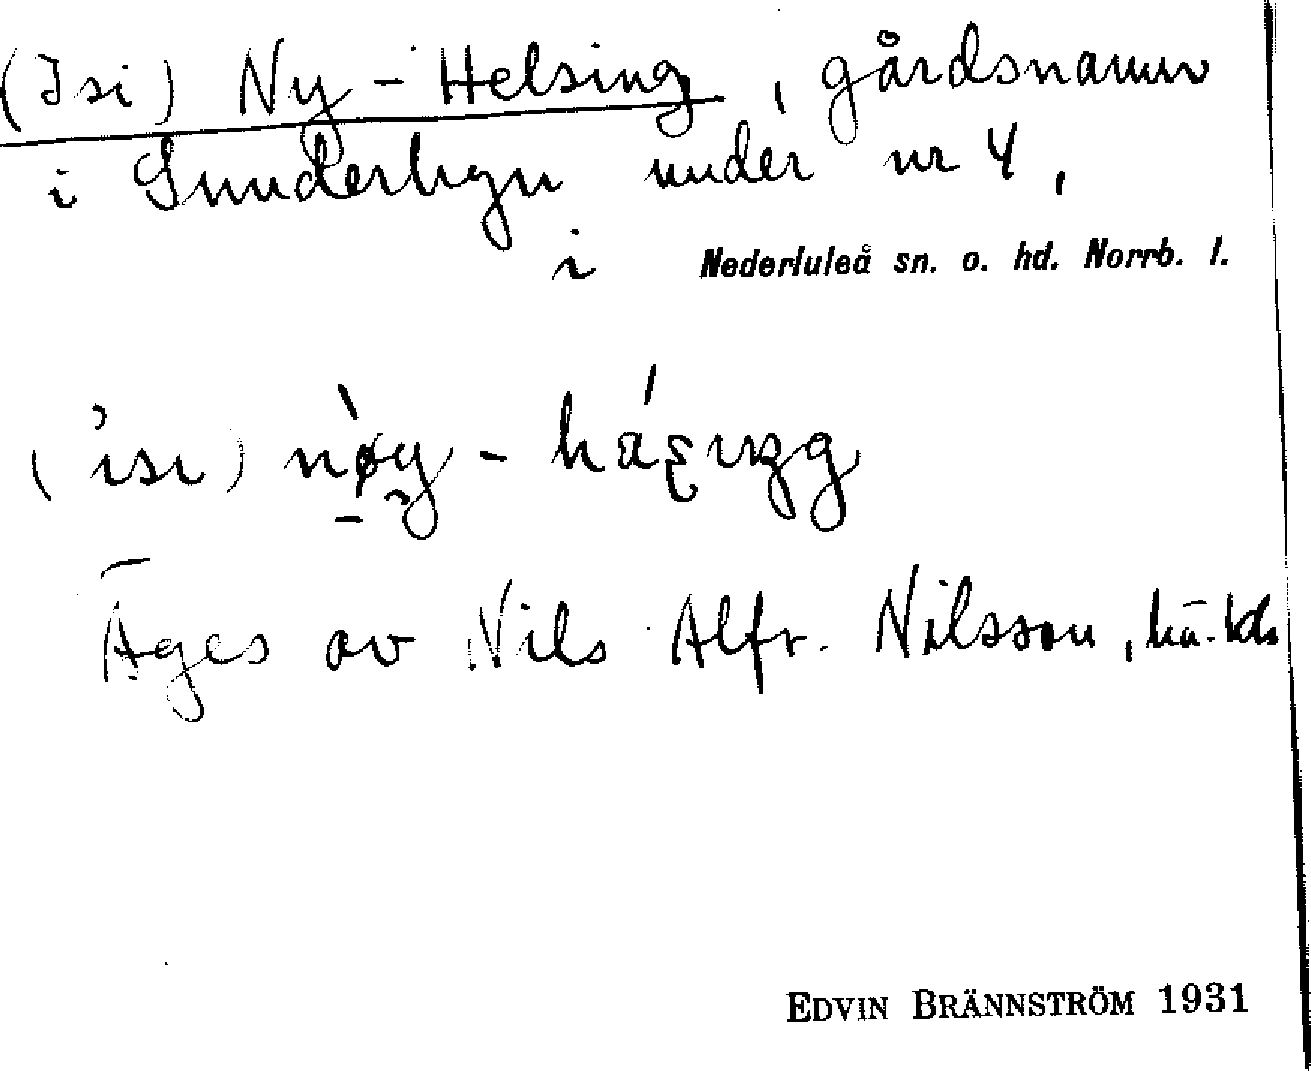 (Isi) Ny-Helsing, gårdsnamn
i Sunderbyn under nr 4,
i Nederluleå sn. o. hd. Norrb. l.
Äges av Nils Alfr. Nilsson,
EDVIN BRÄNNSTRÖM 1931